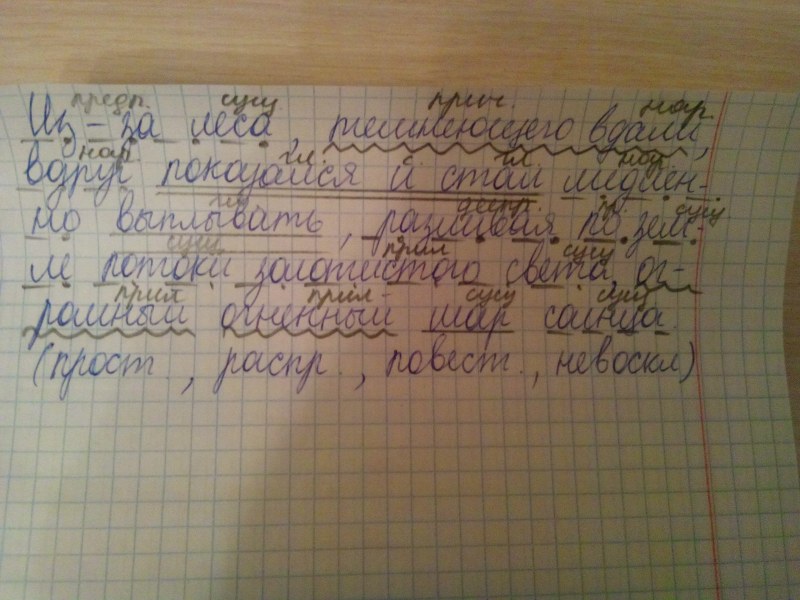 предп. сущ. прич. нар.
Из-за леса, темнеющего вдали,
нар. гл. гл. нар.
вдруг показался и стал медлен-
гл. деепр. пр. сущ.
но выплывать, разливая по зем-
сущ. прил сущ
ле потоки золотистого света ог-
прил прил- сущ сущ
ромный огненный шар солнца.
(прост., распр., повест., невоскл)